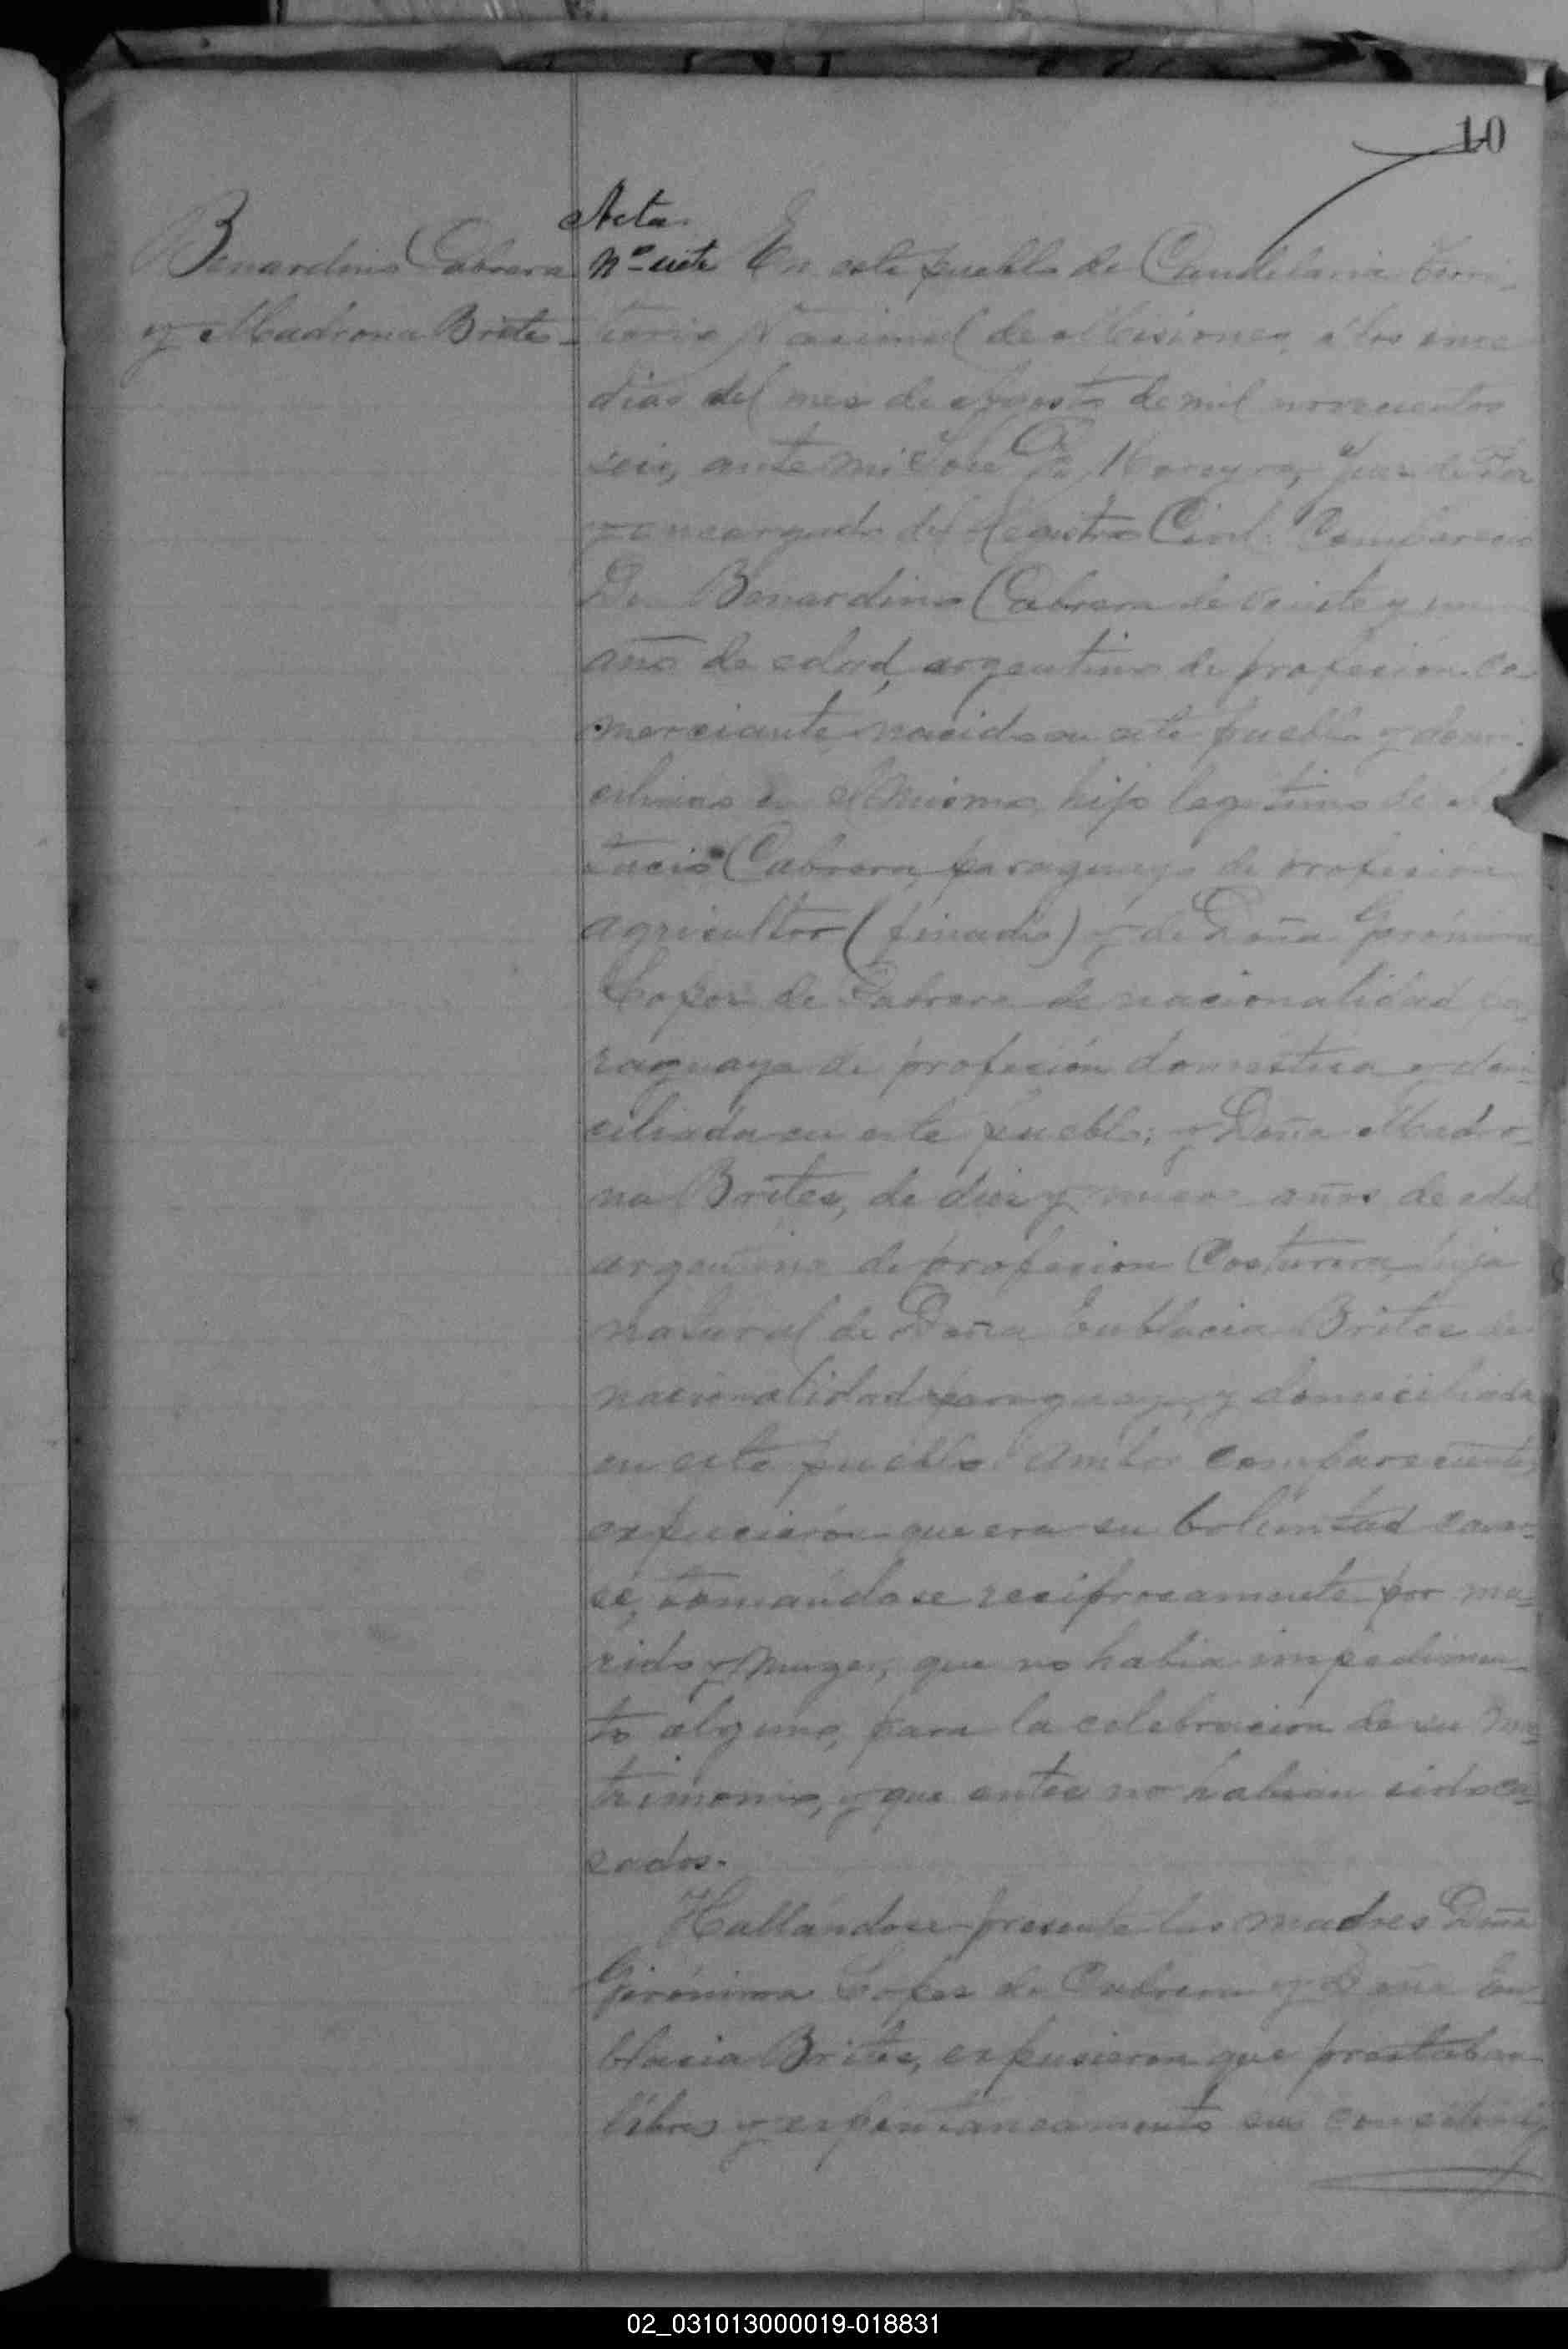 10
Benardino Cabrera
y Madrona Brites
Acta
Nº siete En este pueblo de Candelaria Terri-
torio Nacional de Misiones, á los once
dias del mes de Agosto de mil novecientos
seis, ante mi José Juez de Paz
y encargado del Registro Civil: Comparecio
Dn Benardino Cabrera de veinte y un
año de edad, argentino de profesion co-
merciante nacido en este pueblo y domi-
ciliado en el mismo, hijo legitimo de
Cabrera, paraguayo de profesión
agricultor (finado) y de Doña Gerónima
Lopez de Cabrera de nacionalidad pa-
raguaya de profesión domestica y domi-
ciliada en este pueblo; y Doña Madro-
na Brites, de diez y nueve años de edad
argentina de profesion Costurera, hija
natural de Doña Eublacia Brites de
nacionalidad paraguaya, y domiciliada
en este pueblo. Ambos comparecientes
expucieron que era su boluntad casar-
se, tomandose reciprocamente por ma-
rido y muger, que no habia impedimen-
to alguno, para la celebracion de su ma-
trimonio, y que antes no habian sido ca-
sados.
Hallándose presente las madres Doña
Gerónima Lopez de Cabrera y Doña Eu-
blacia Brites, expusieron que prestaban
libres y expontaneamente sus
02_031013000019-018831